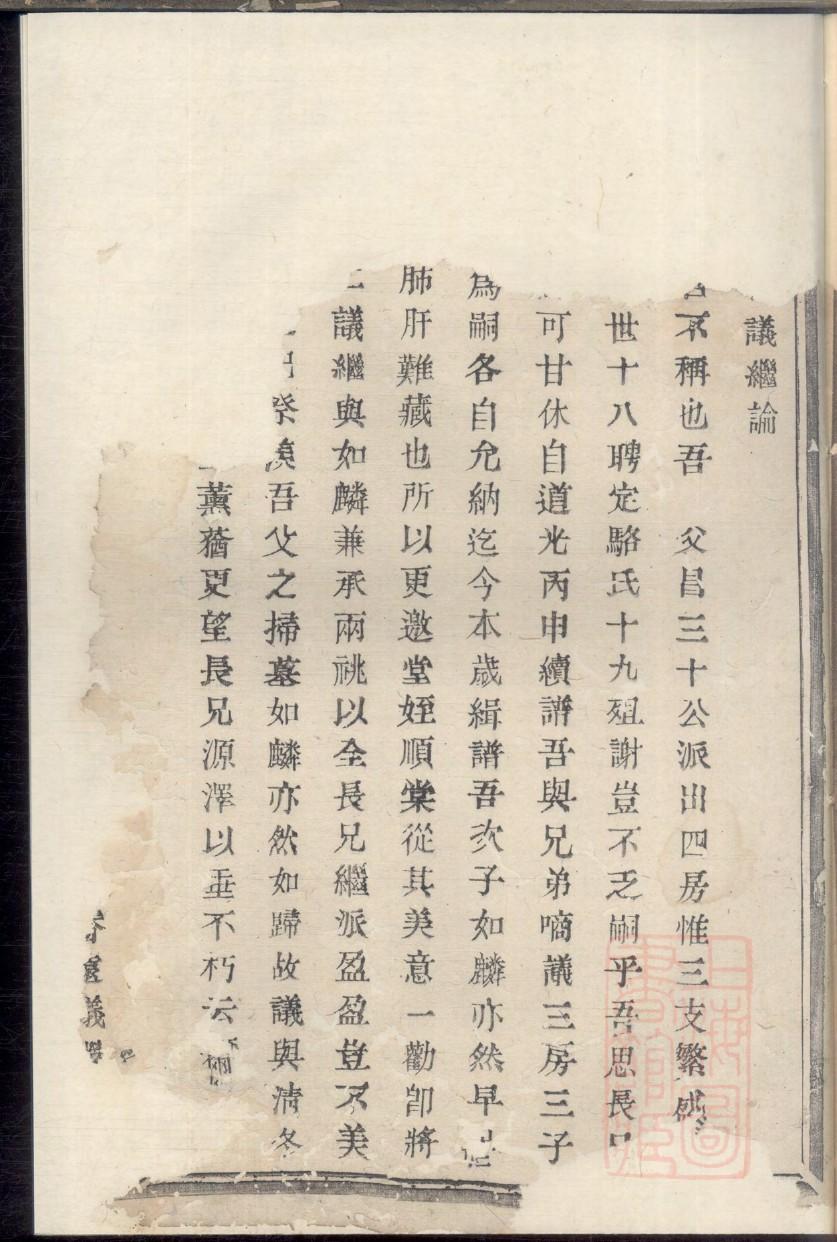 議繼論
不稱也吾　父昌三十公派出四房惟三支繁盛
世十八聘定駱氏十九殂謝豈不乏嗣乎吾思長
可甘休自道光丙申續譜吾與兄弟啇議三房三子
為嗣各自允納迄今本歲緝譜吾次子如麟亦然早
肺肝難藏也所以更邀堂姪順棠從其美意一勸卽將
議繼與如麟兼承兩祧以全長兄繼派盈盈豈不美
祭奠吾父之掃墓如麟亦然如歸故議與清冬
薰蕕更望長兄源澤以垂不朽云
義
上海圖書館藏